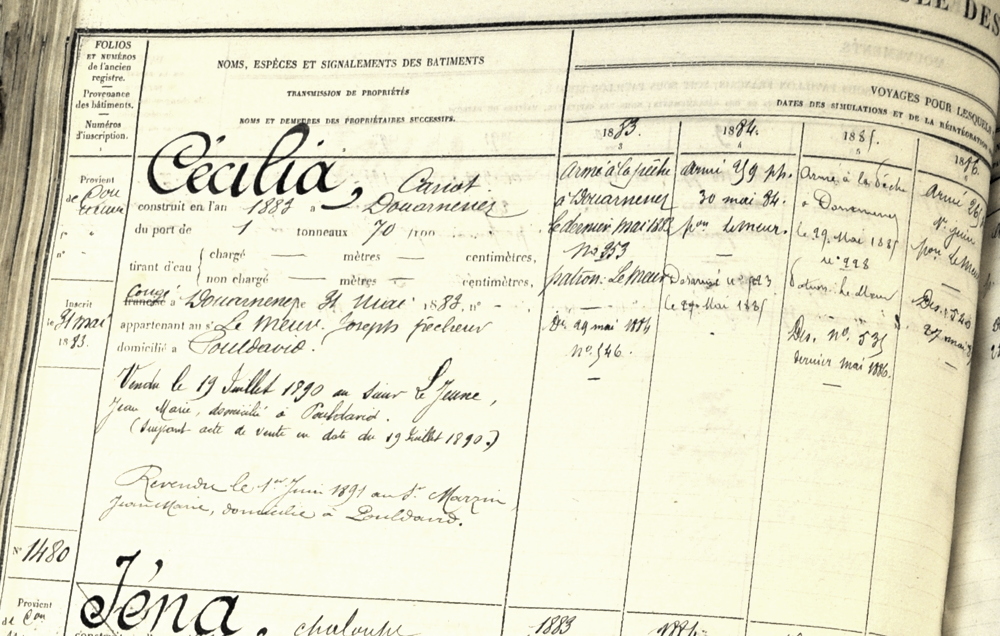 FOLIOS
ET NUMÉROS
de l'ancien
registre.
Provenance
des bâtiments.
Numéros
d'inscription.
NOMS, ESPÈCES ET SIGNALEMENTS DES BATIMENTS
TRANSMISSION DE PROPRIÉTÉS
NOMS ET DEMEURES DES PROPRIÉTAIRES SUCCESSIFS.
VOYAGES POUR LESQUELS
DATES DES SIMULATIONS ET DE LA RÉINTÉGRATION
1883.
1884.
1885.
1886.
Provient
de
Cécilia, Canot
construit en l'an 1883 a Douarnenez
du port de 1 tonneaux 70 /100
tirant d'eau
chargé — mètres — centimètres,
non chargé — mètres — centimètres,
Congé
francisé a Douarnenez le 31 mai 1883, n° —
appartenant au sr Le Meur Joseph pêcheur
domicilié a Pouldavid.
Inscrit
le 31 mai
1883.
Vendu le 19 Juillet 1890 au sieur Le Jeune,
Jean Marie, domicilié à Pouldavid.
(Suivant acte de vente en date du 19 Juillet 1890.)
Revendu le 1er Juin 1891 au Sr Marzin
Jean Marie, domicilié à Pouldavid.
Armé à la pêche
à Douarnenez
le dernier mai 1883
N° 353
patron Le Meur
Des. 29 mai 1884
N° 546.
Armé 359 ph.
30 mai 84.
pon Le Meur.
Désarmé n° 523
le 29 Mai 1885
Armé à la Pêche
à Douarnenez
le 29 Mai 1885
n° 228
Patron Le Meur
Des. n° 535
dernier mai 1886.
Armé
1er Juin
pon Le Meur
Des.
27 mai
N° 1480
Provient
de
Iéna, chaloupe
1883
1884